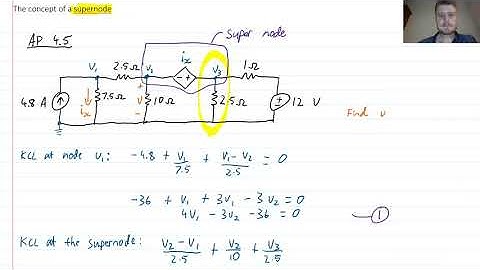 The concept of a supernode
AP 4.5
Super node
2.5Ω
ix
1Ω
V1
V2
V3
4.8 A
ix
7.5Ω
+
V
-
10Ω
- +
2.5Ω
+
-
12 V
Find v
KCL at node V1: -4.8 + V1/7.5 + (V1-V2)/2.5 = 0
-36 + V1 + 3V1 - 3V2 = 0
4V1 - 3V2 - 36 = 0
1
KCL at the supernode: (V2 - V1)/2.5 + V2/10 + V3/2.5